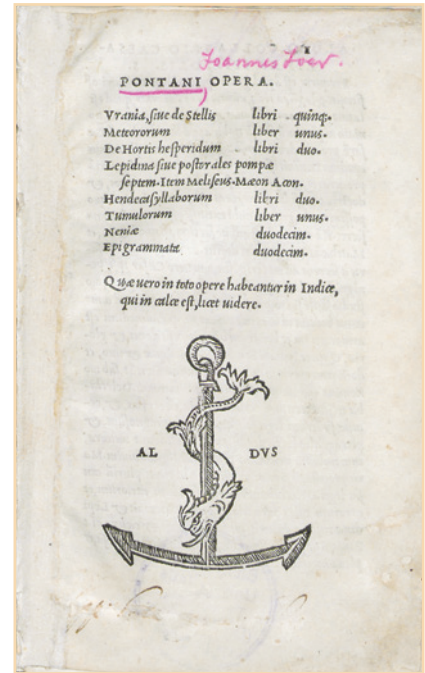 Joannes Jov.
PONTANI OPERA.
Vrania, siue de Stellis libri quinq;.
Meteororum liber unus.
De Hortis hesperidum libri duo.
Lepidina siue postorales pompæ
septem. Item Meliseus. Mæon Acon.
Hendecasyllaborum libri duo.
Tumulorum liber unus.
Neniæ duodecim.
Epigrammata duodecim.
Quæ uero in toto opere habeantur in Indice,
qui in calce est, licet uidere.
AL DVS